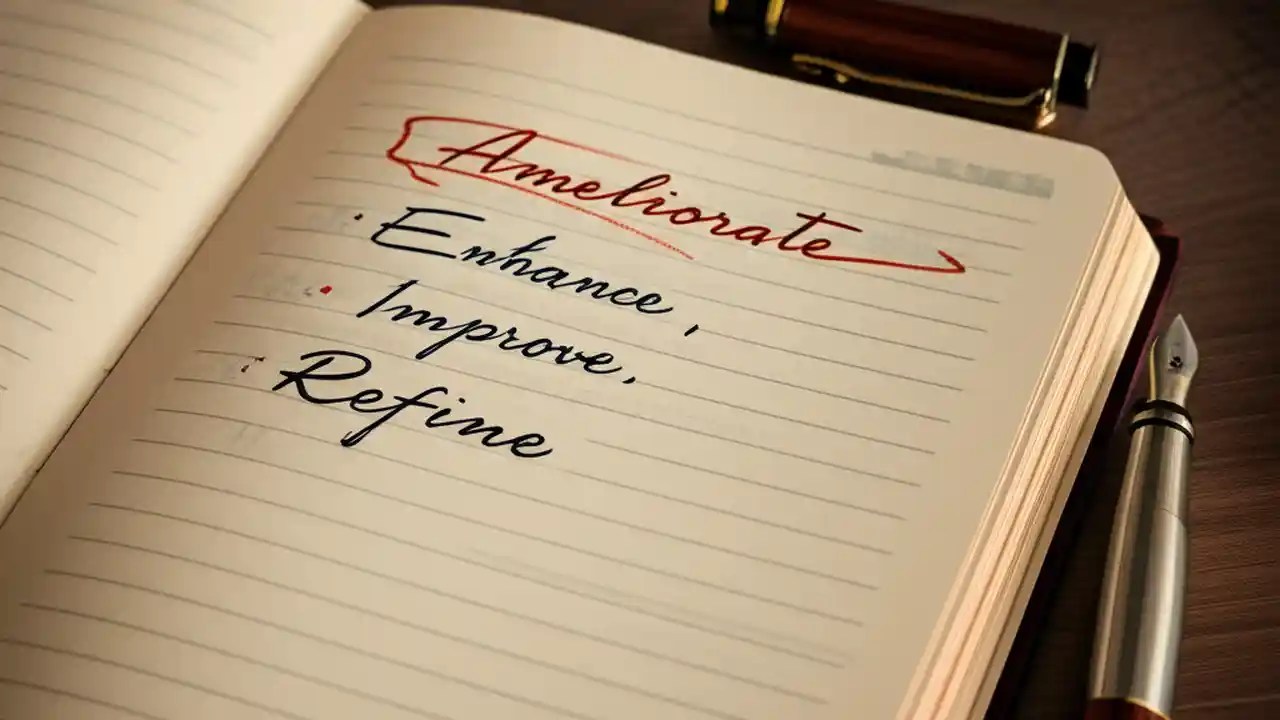 Ameliorate
· Enhance,
· Improve.
· Refine